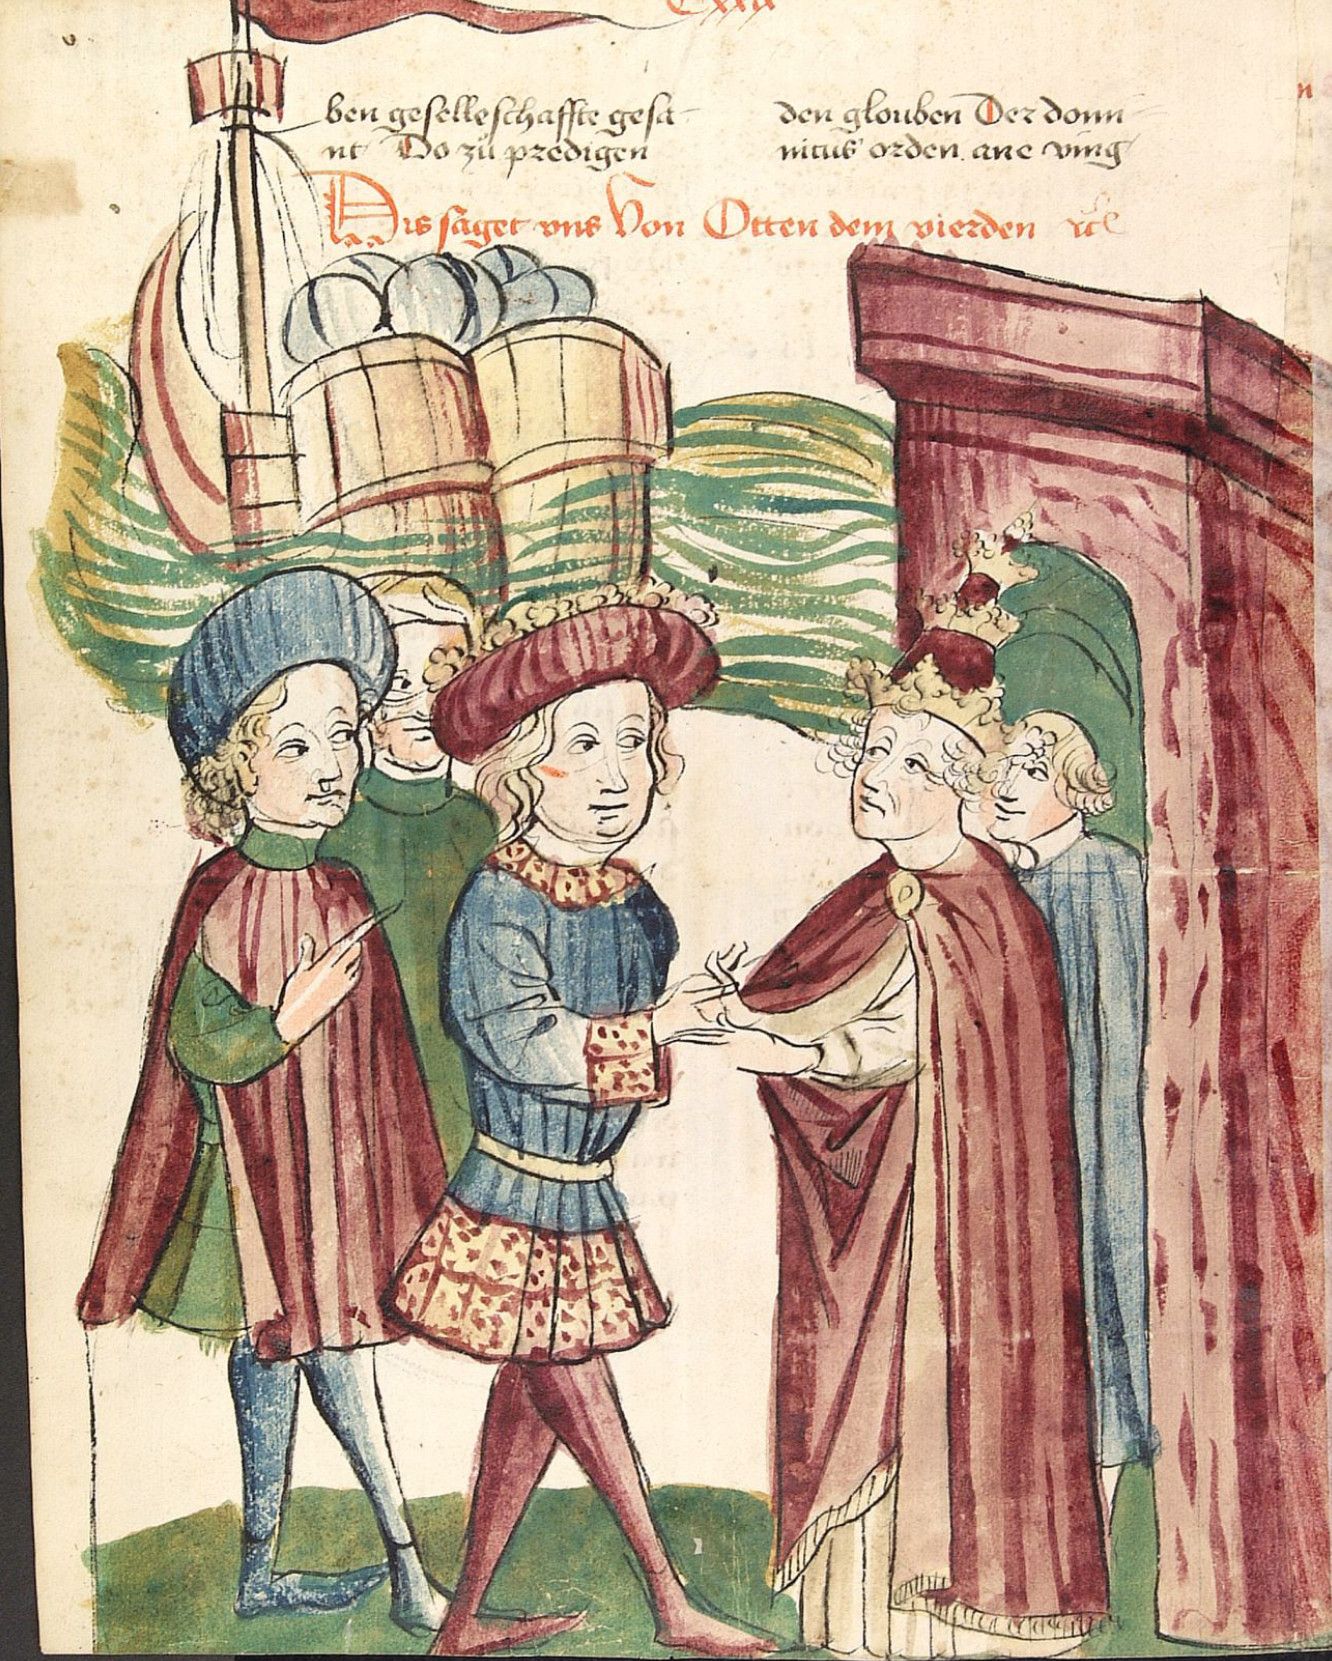 Cxxx
ben geselleschafft gesa-
nt Do zů predigen
den glouben Der domi-
nicus orden ane ving
Dis saget vns Von Otten dem vierden
n